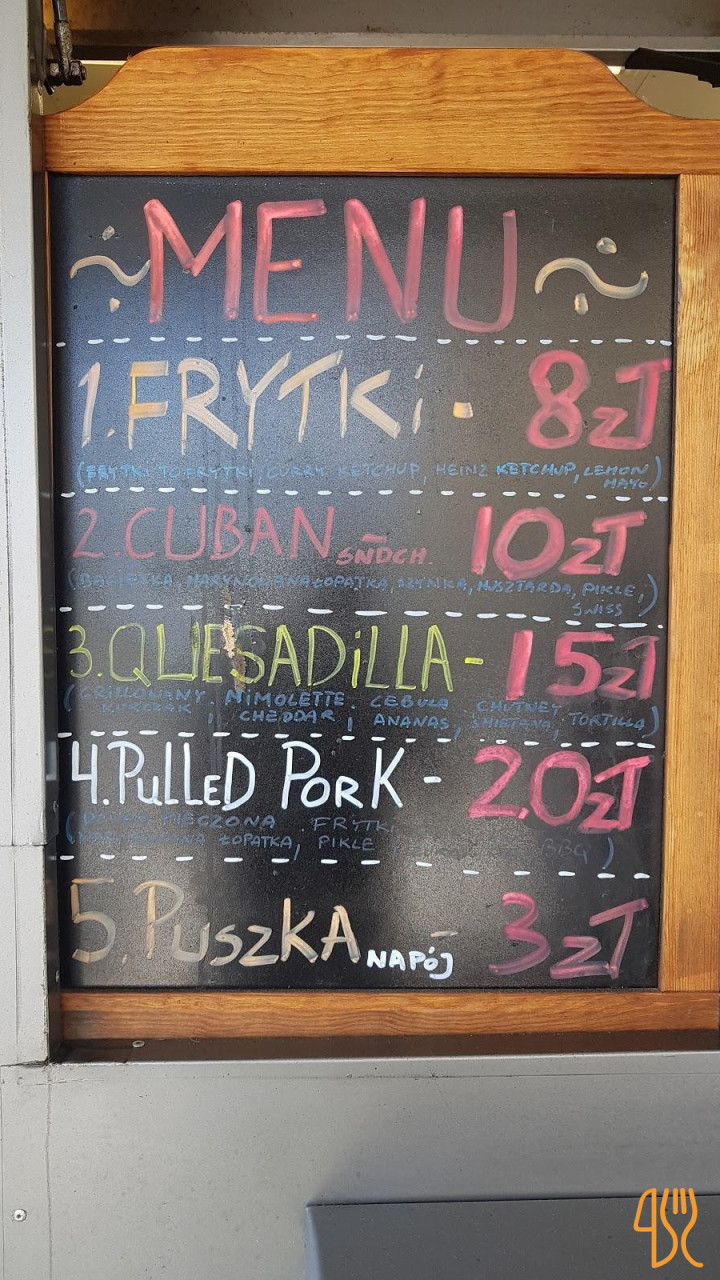 MENU
1. FRYTKi - 8zł
(FRYTKI TO FRYTKI, CURRY KETCHUP, HEINZ KETCHUP, LEMON
MAYO)
2. CUBAN SNDCH. - 10zł
(BAGIETKA, MARYNOWANA ŁOPATKA, SZYNKA, MUSZTARDA, PIKLE,
SWISS)
3. QUESADiLLA - 15zł
(GRILLOWANY MIMOLETTE CEBULA CHUTNEY
KURCZAK, CHEDDAR, ANANAS, ŚMIETANA, TORTILLA)
4. PULLED PORK - 20zł
PIECZONA FRYTKI
ŁOPATKA, PIKLE BBQ)
5. PUSZKA NAPÓJ - 3zł